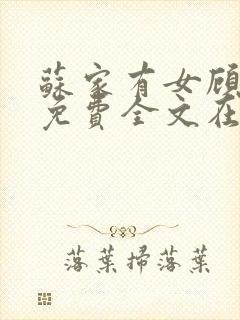 蘇家有女顧
免費全文在
落葉掃落葉